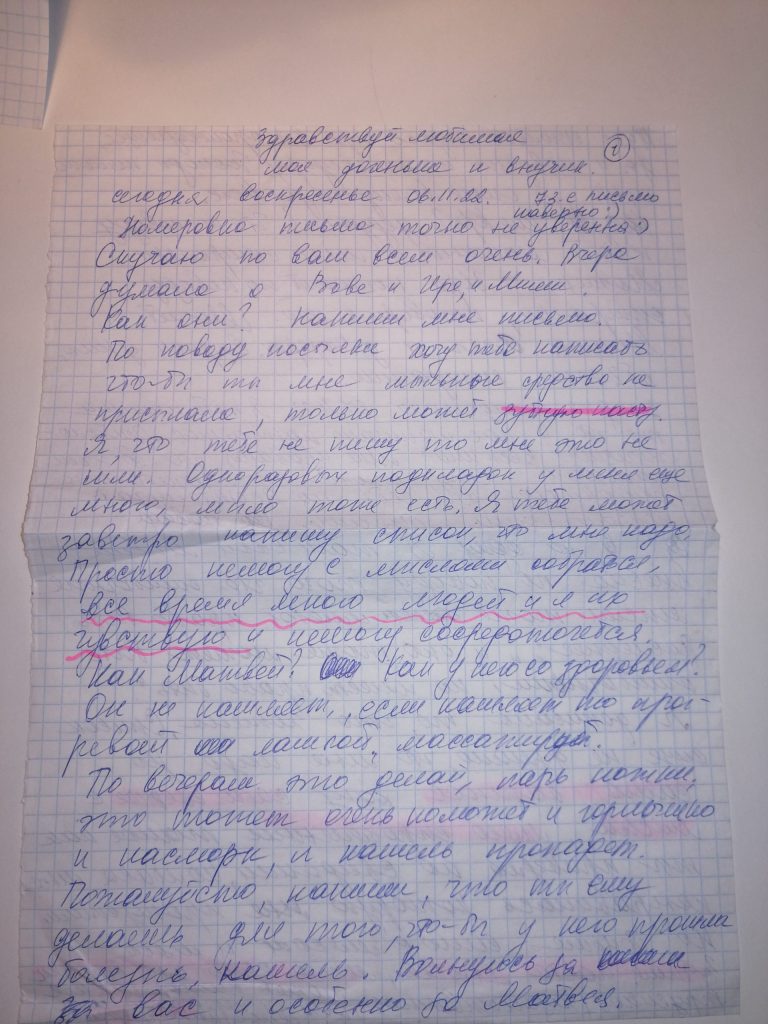 Здравствуй любимая
моя доченька и внучик. 1
сегодня воскресенье 06.11.22. 73-е письмо
наверно:)
Номеровка письма точно не уверенна:)
Скучаю по вам всем очень. Вчера
думала о Вове и Ире, и Миши.
Как они? Напиши мне письмо.
По поводу посылки хочу тебе написать
что-бы ты мне мыльные средство не
присылала, только может зубную пасту.
Я, что тебе не пишу то мне это не
шли. Одноразовых подкладок у меня еще
много, мыло тоже есть. Я тебе может
завтро напишу список, что мне надо.
Просто немогу с мыслями собратся,
все время много людей и я их
чувствую и немогу сосредоточется.
Как Матвей? Как у него со здоровьем?
Он не кашляет, если кашляет то прог-
ревай лампой, массажируй.
По вечерам это делай, парь ножки,
это может очень поможет и горлычко
и насморк, и кашель пропадет.
Пожалуйсто, напиши, что ты ему
делаешь для того, что-бы у него прошла
болезнь, кашель. Волнуюсь за
за вас и особенно за Матвея.